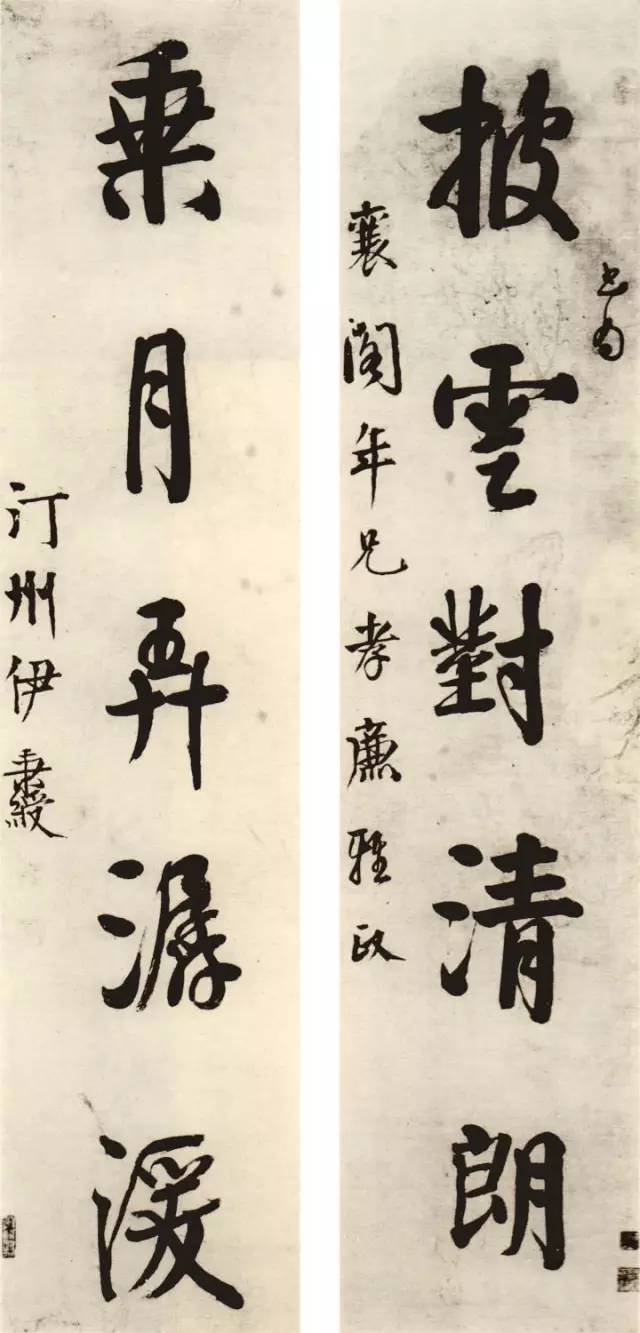 披雲對清朗
書為
襄閣年兄孝廉雅政
乘月弄潺湲
汀州伊秉綬